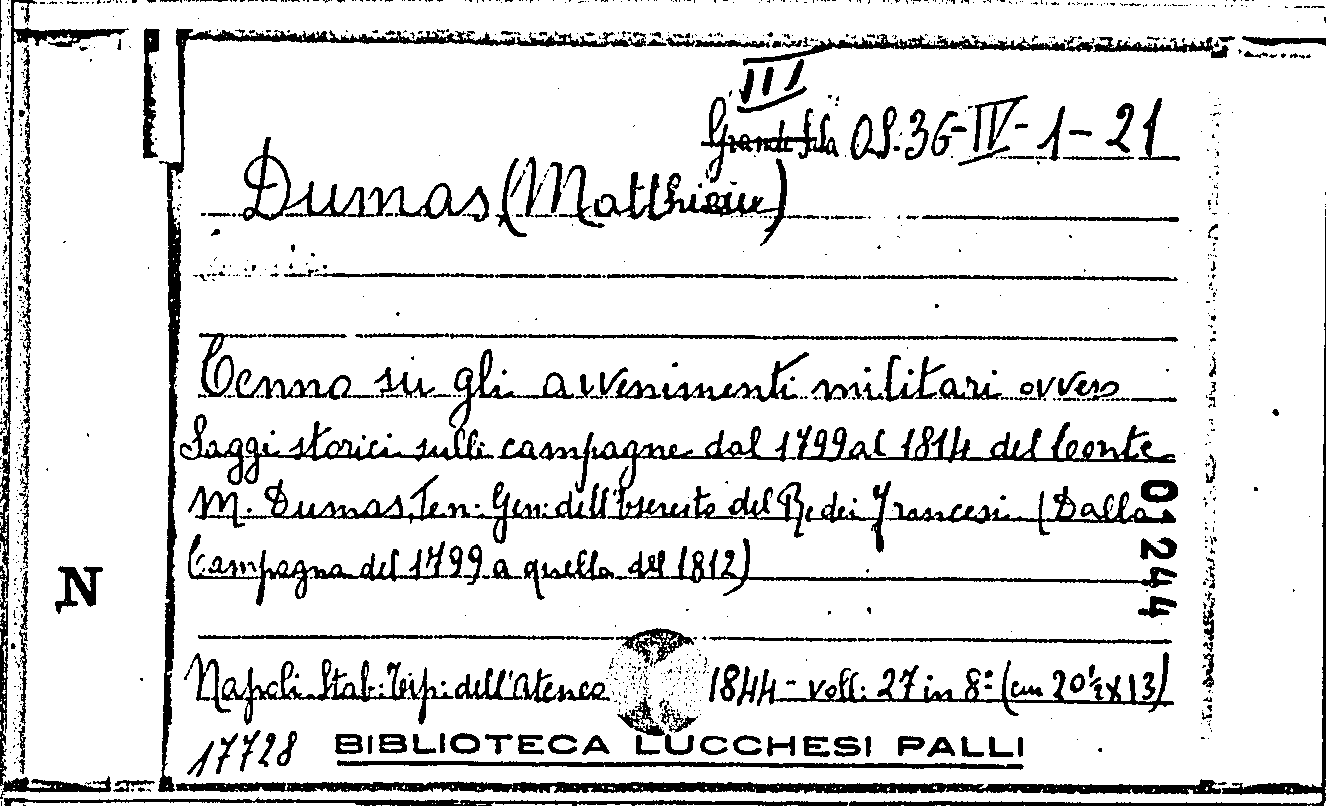 III
Grande Sala O.S. 36-IV-1-21
Dumas (Matthieu)
Cenno su gli avvenimenti militari ovvero
Saggi storici sulle campagne dal 1799 al 1814 del Conte
M. Dumas, Ten: Gen: dell'Esercito del Re dei Francesi (Dalla
Campagna del 1799 a quella del 1812)
01244
N
Napoli Stab: Tip: dell'Ateneo 1844 - voll: 27 in 8º (cm 20½ X 13)
17728 BIBLIOTECA LUCCHESI PALLI